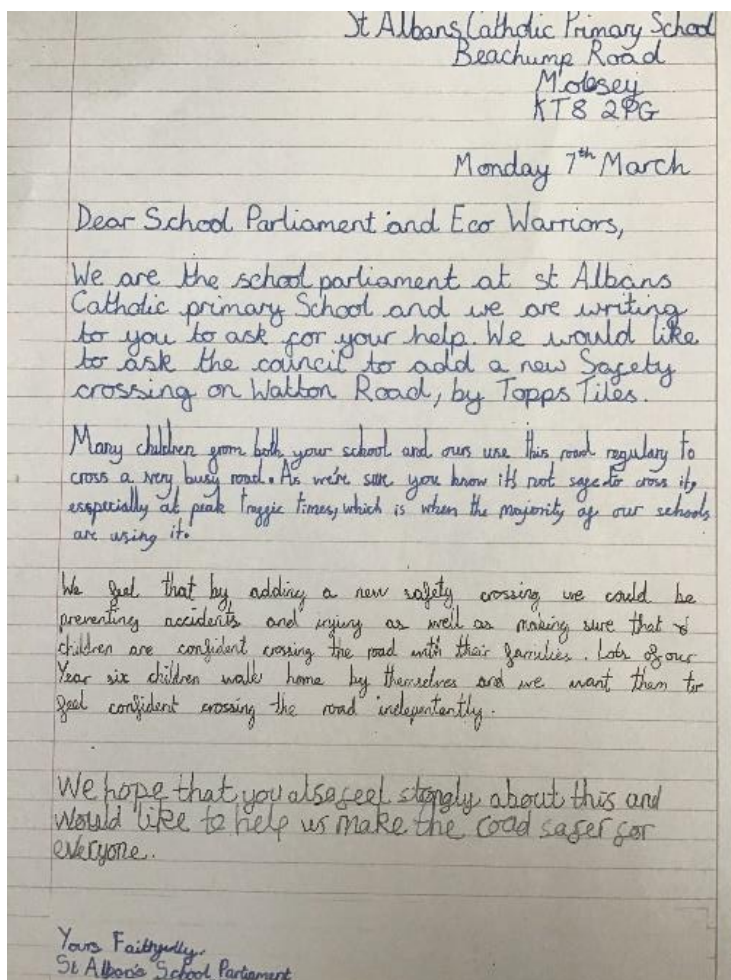 St Albans Catholic Primary School
Beachump Road
Molesey
KT8 2PG
Monday 7th March
Dear School Parliament and Eco Warriors,
We are the school parliament at st Albans
Catholic primary School and we are writing
to you to ask for your help. We would like
to ask the council to add a new Safety
crossing on Walton Road, by Topps Tiles.
Many children from both your school and ours use this road regulary to
cross a very busy road. As we're sure you know it's not safe to cross it,
esspecially at peak traffic times, which is when the majority of our schools
are using it.
We feel that by adding a new safety crossing we could be
preventing accidents and injury as well as making sure that
children are confident crossing the road with their families. Lots of our
Year six children walk home by themselves and we want them to
feel confident crossing the road indepentently.
We hope that you also feel stongly about this and
would like to help us make the road safer for
everyone.
Yours Faithfully,
St Alban's School Parliament